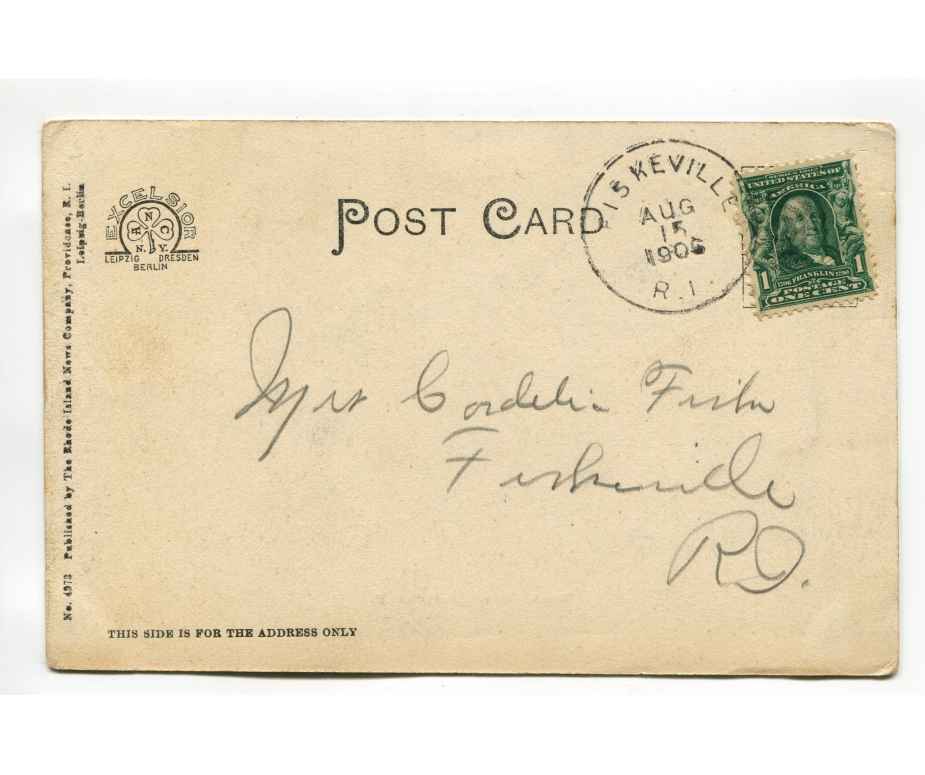 No. 4973 Published by The Rhode Island News Company, Providence, R. I.
Leipzig-Berlin
EXCELSIOR
A N C
N. Y.
LEIPZIG DRESDEN
BERLIN
POST CARD
FISKEVILLE
AUG
15
R.I.
UNITED STATES OF
AMERICA
1 FRANKLIN 1
POSTAGE
ONE CENT
Mrs Cordelia
Fiskeville
R.I.
THIS SIDE IS FOR THE ADDRESS ONLY